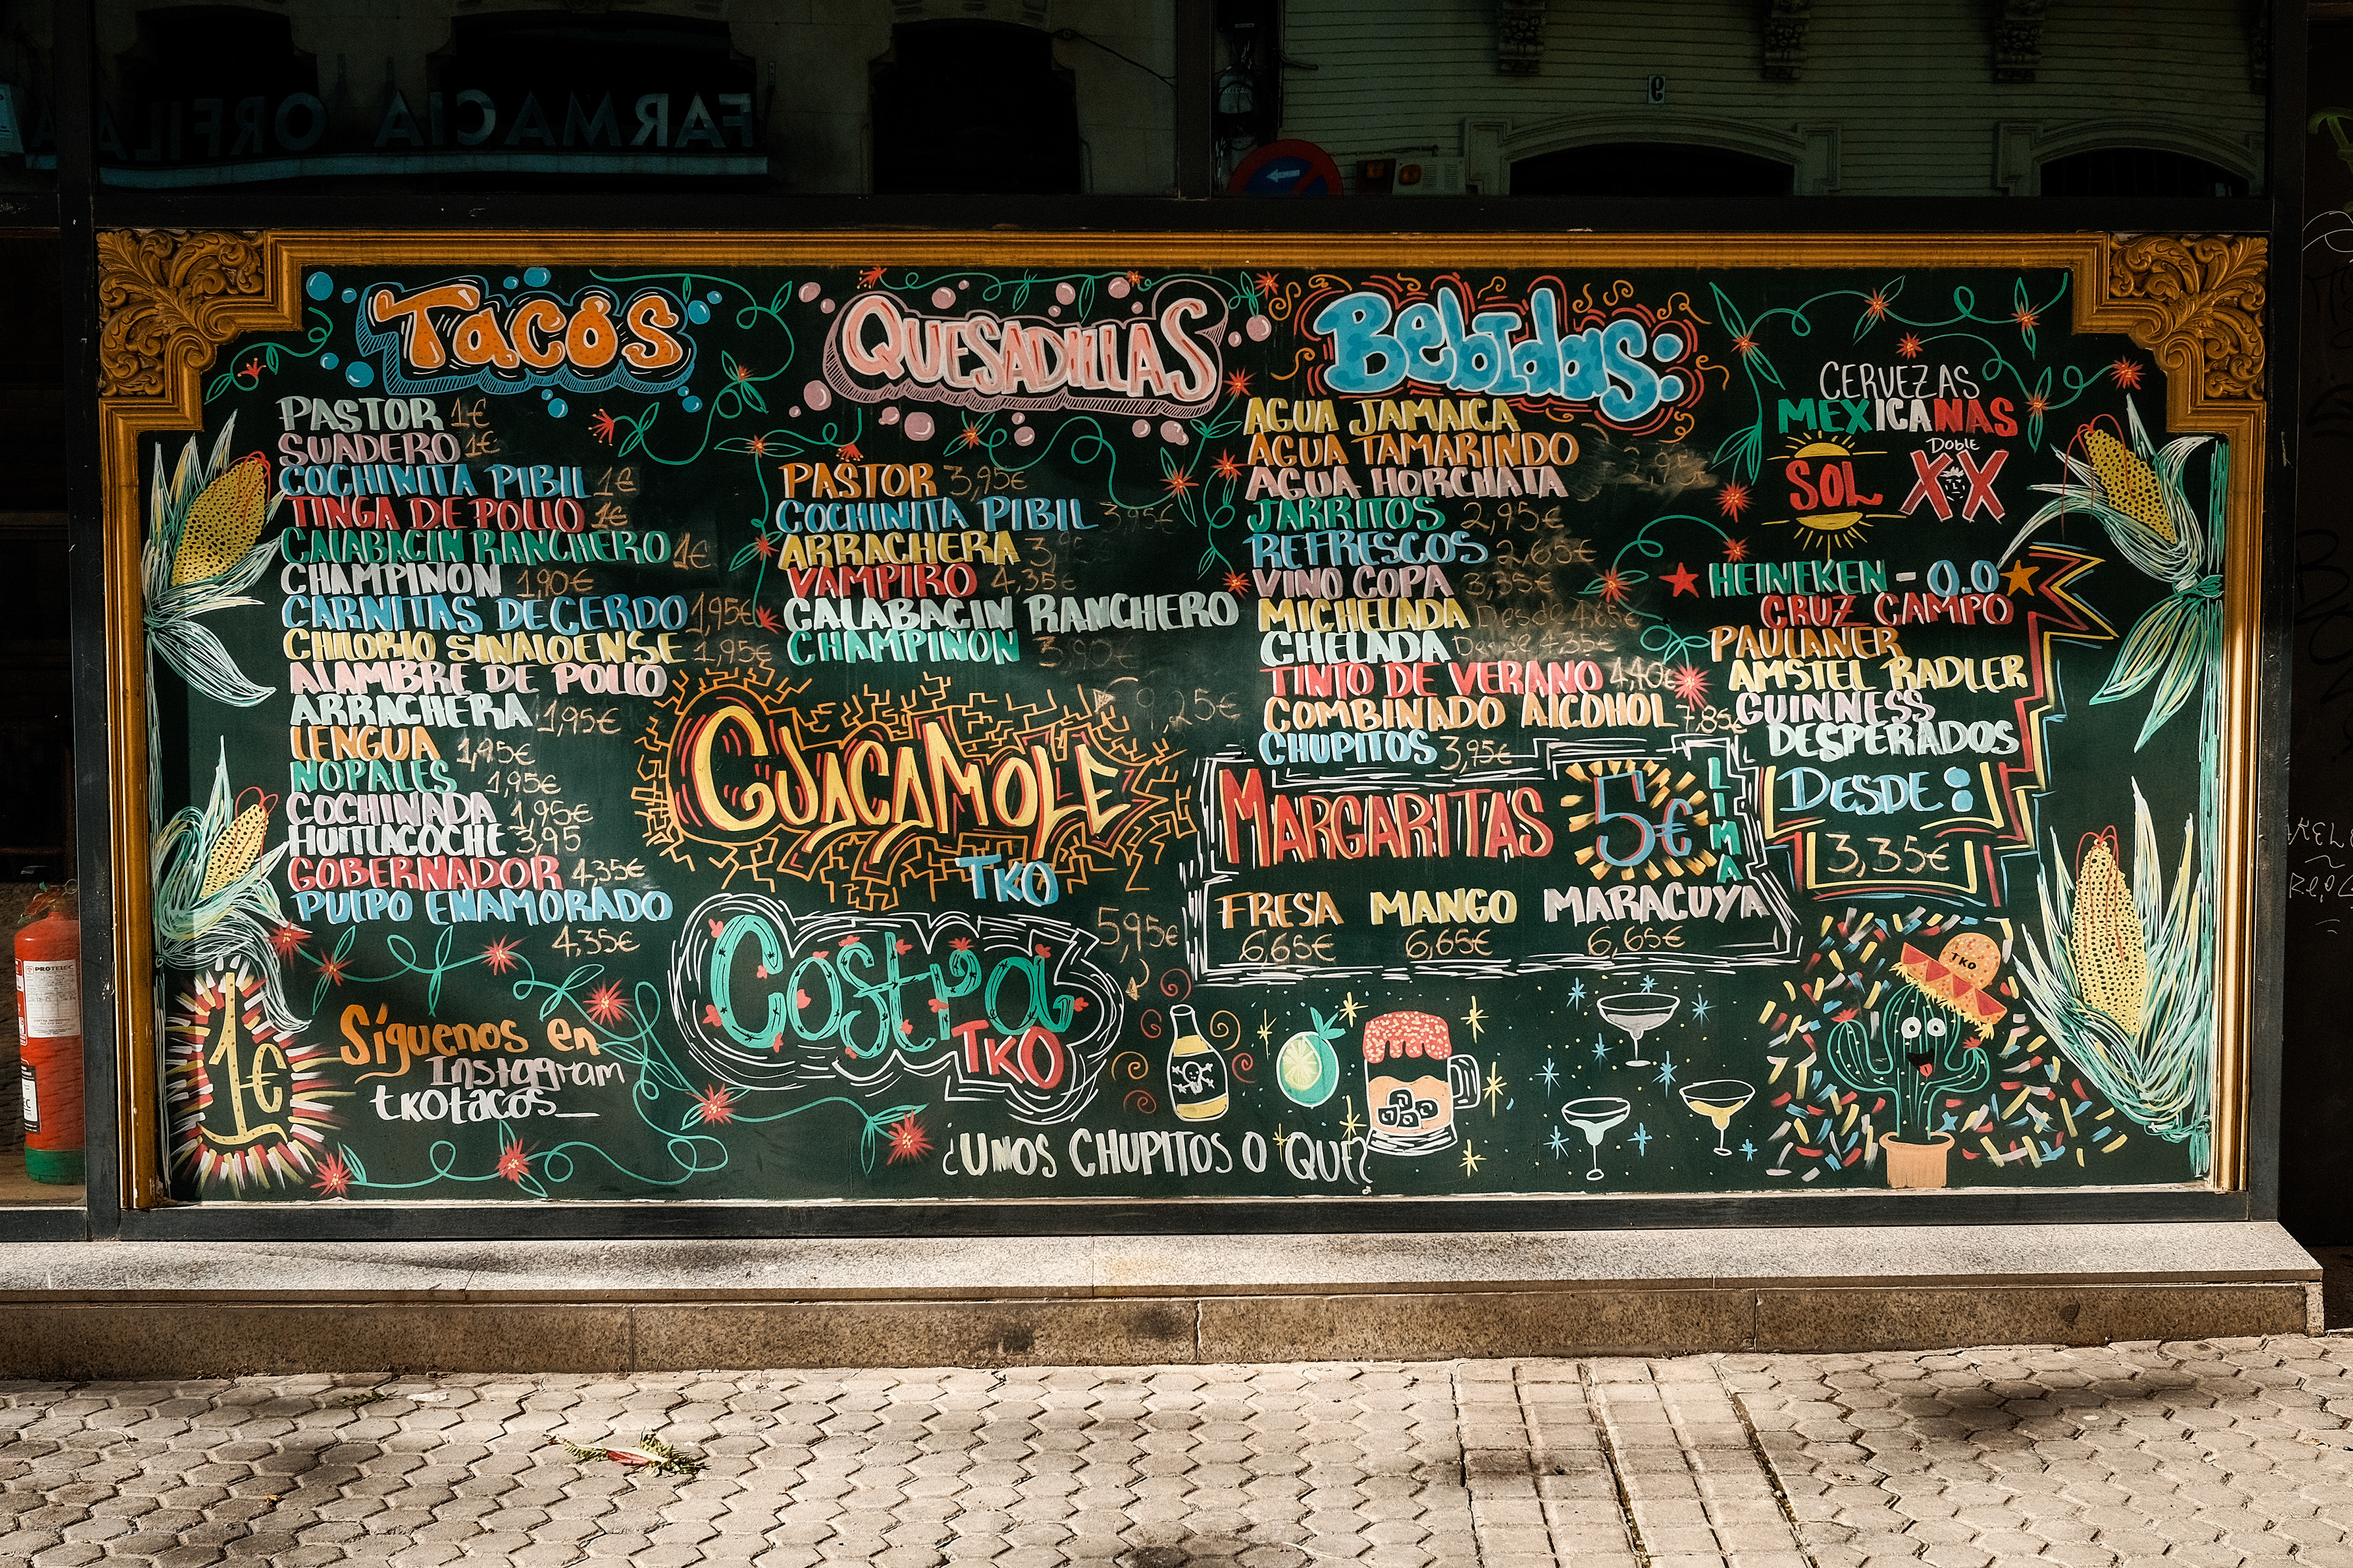 FARMACIA ORFILA
9
Tacos
PASTOR 1€
SUADERO 1€
COCHINITA PIBIL 1€
TINGA DE POLLO 1€
CALABACIN RANCHERO 1€
CHAMPIÑON 1,90€
CARNITAS DE CERDO 1,95€
CHILORIO SINALOENSE 1,95€
ALAMBRE DE POLLO
ARRACHERA 1,95€
LENGUA 1,95€
NOPALES 1,95€
COCHINADA 1,95€
HUITLACOCHE 3,95
GOBERNADOR 4,35€
PULPO ENAMORADO
4,35€
1€
Síguenos en
Instagram
tkotacos_
QUESADILLAS
PASTOR 3,95€
COCHINITA PIBIL 3,95€
ARRACHERA 3,95
VAMPIRO 4,35€
CALABACIN RANCHERO
CHAMPIÑON 3,90€
9,25€
GUACAMOLE
TKO
5,95€
Costra
TKO
¿UNOS CHUPITOS O QUE?
Bebidas:
AGUA JAMAICA
AGUA TAMARINDO
AGUA HORCHATA 2,95€
JARRITOS 2,95€
REFRESCOS 2,65€
VINO COPA 3,35€
MICHELADA Desde 4,65€
CHELADA Desde 4,35€
TINTO DE VERANO 4,40€
COMBINADO ALCOHOL 7,85€
CHUPITOS 3,95€
MARGARITAS 5€ LIMA
FRESA MANGO MARACUYA
6,65€ 6,65€ 6,65€
CERVEZAS
MEXICANAS
SOL DOBLE XX
HEINEKEN - 0.0
CRUZ CAMPO
PAULANER
AMSTEL RADLER
GUINNESS
DESPERADOS
DESDE:
3,35€
TKO
PROTELEC